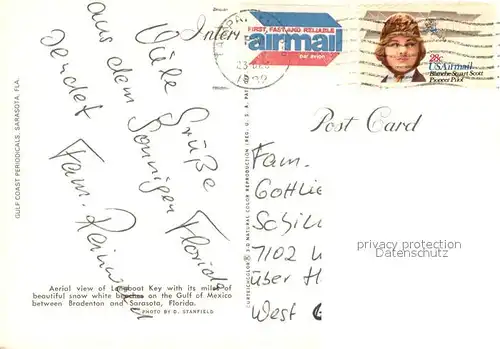 Intern
FIRST, FAST AND RELIABLE
airmail
par avion
TAMPA
28c
USAirmail
Blanche Stuart Scott
Pioneer Pilot
Post Card
Viele Grüße
aus dem Sonnigen Florida
sendet Fam.
GULF COAST PERIODICALS, SARASOTA, FLA.
CURTEICHCOLOR® 3-D NATURAL COLOR REPRODUCTION (REG. U.S.A.
Fam.
Gottlie
Schil
7102
über H
West G
privacy protection
Datenschutz
Aerial view of Longboat Key with its miles of
beautiful snow white beaches on the Gulf of Mexico
between Bradenton and Sarasota, Florida.
PHOTO BY D. STANFIELD